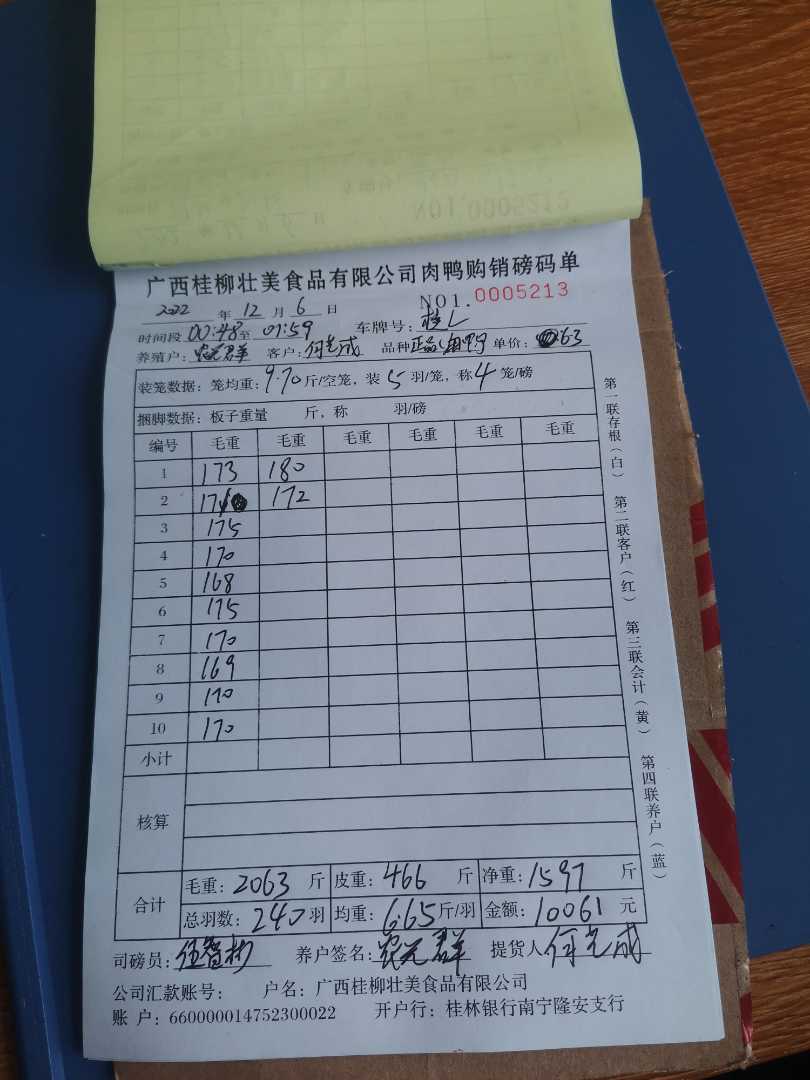 广西桂柳壮美食品有限公司肉鸭购销磅码单
2022 年 12 月 6 日 NO1.0005213
时间段 00:48 至 01:59 车牌号: 桂L
养殖户: 农元群 客户: 何光成 品种 正品 肉鸭 单价: 63
装笼数据: 笼均重: 9.70 斤/空笼, 装 5 羽/笼, 称 4 笼/磅
捆脚数据: 板子重量 斤, 称 羽/磅
编号 毛重 毛重 毛重 毛重 毛重 毛重
1 173 180
2 171 172
3 175
4 170
5 168
6 175
7 170
8 169
9 170
10 170
小计
核算
合计 毛重: 2063 斤 皮重: 466 斤 净重: 1597 斤
总羽数: 240 羽 均重: 6.65 斤/羽 金额: 10061 元
司磅员: 伍智彬 养户签名: 农元群 提货人 何光成
公司汇款账号: 户名: 广西桂柳壮美食品有限公司
账 户: 660000014752300022 开户行: 桂林银行南宁隆安支行
第一联存根(白) 第二联客户(红) 第三联会计(黄) 第四联养户(蓝)